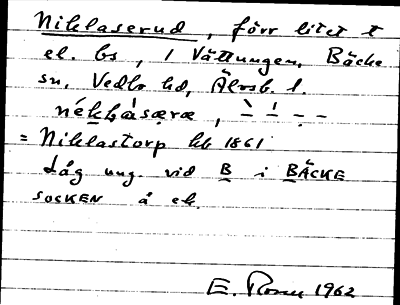 Niklaserud, förr litet t
el. bs, i Vättungen, Bäcke
sn, Vedbo hd, Älvsb. l.
nékḷàsæræ,
= Niklastorp hb 1861
Låg ung. vid B i BÄCKE
SOCKEN å ek.
E. Rosen 1962